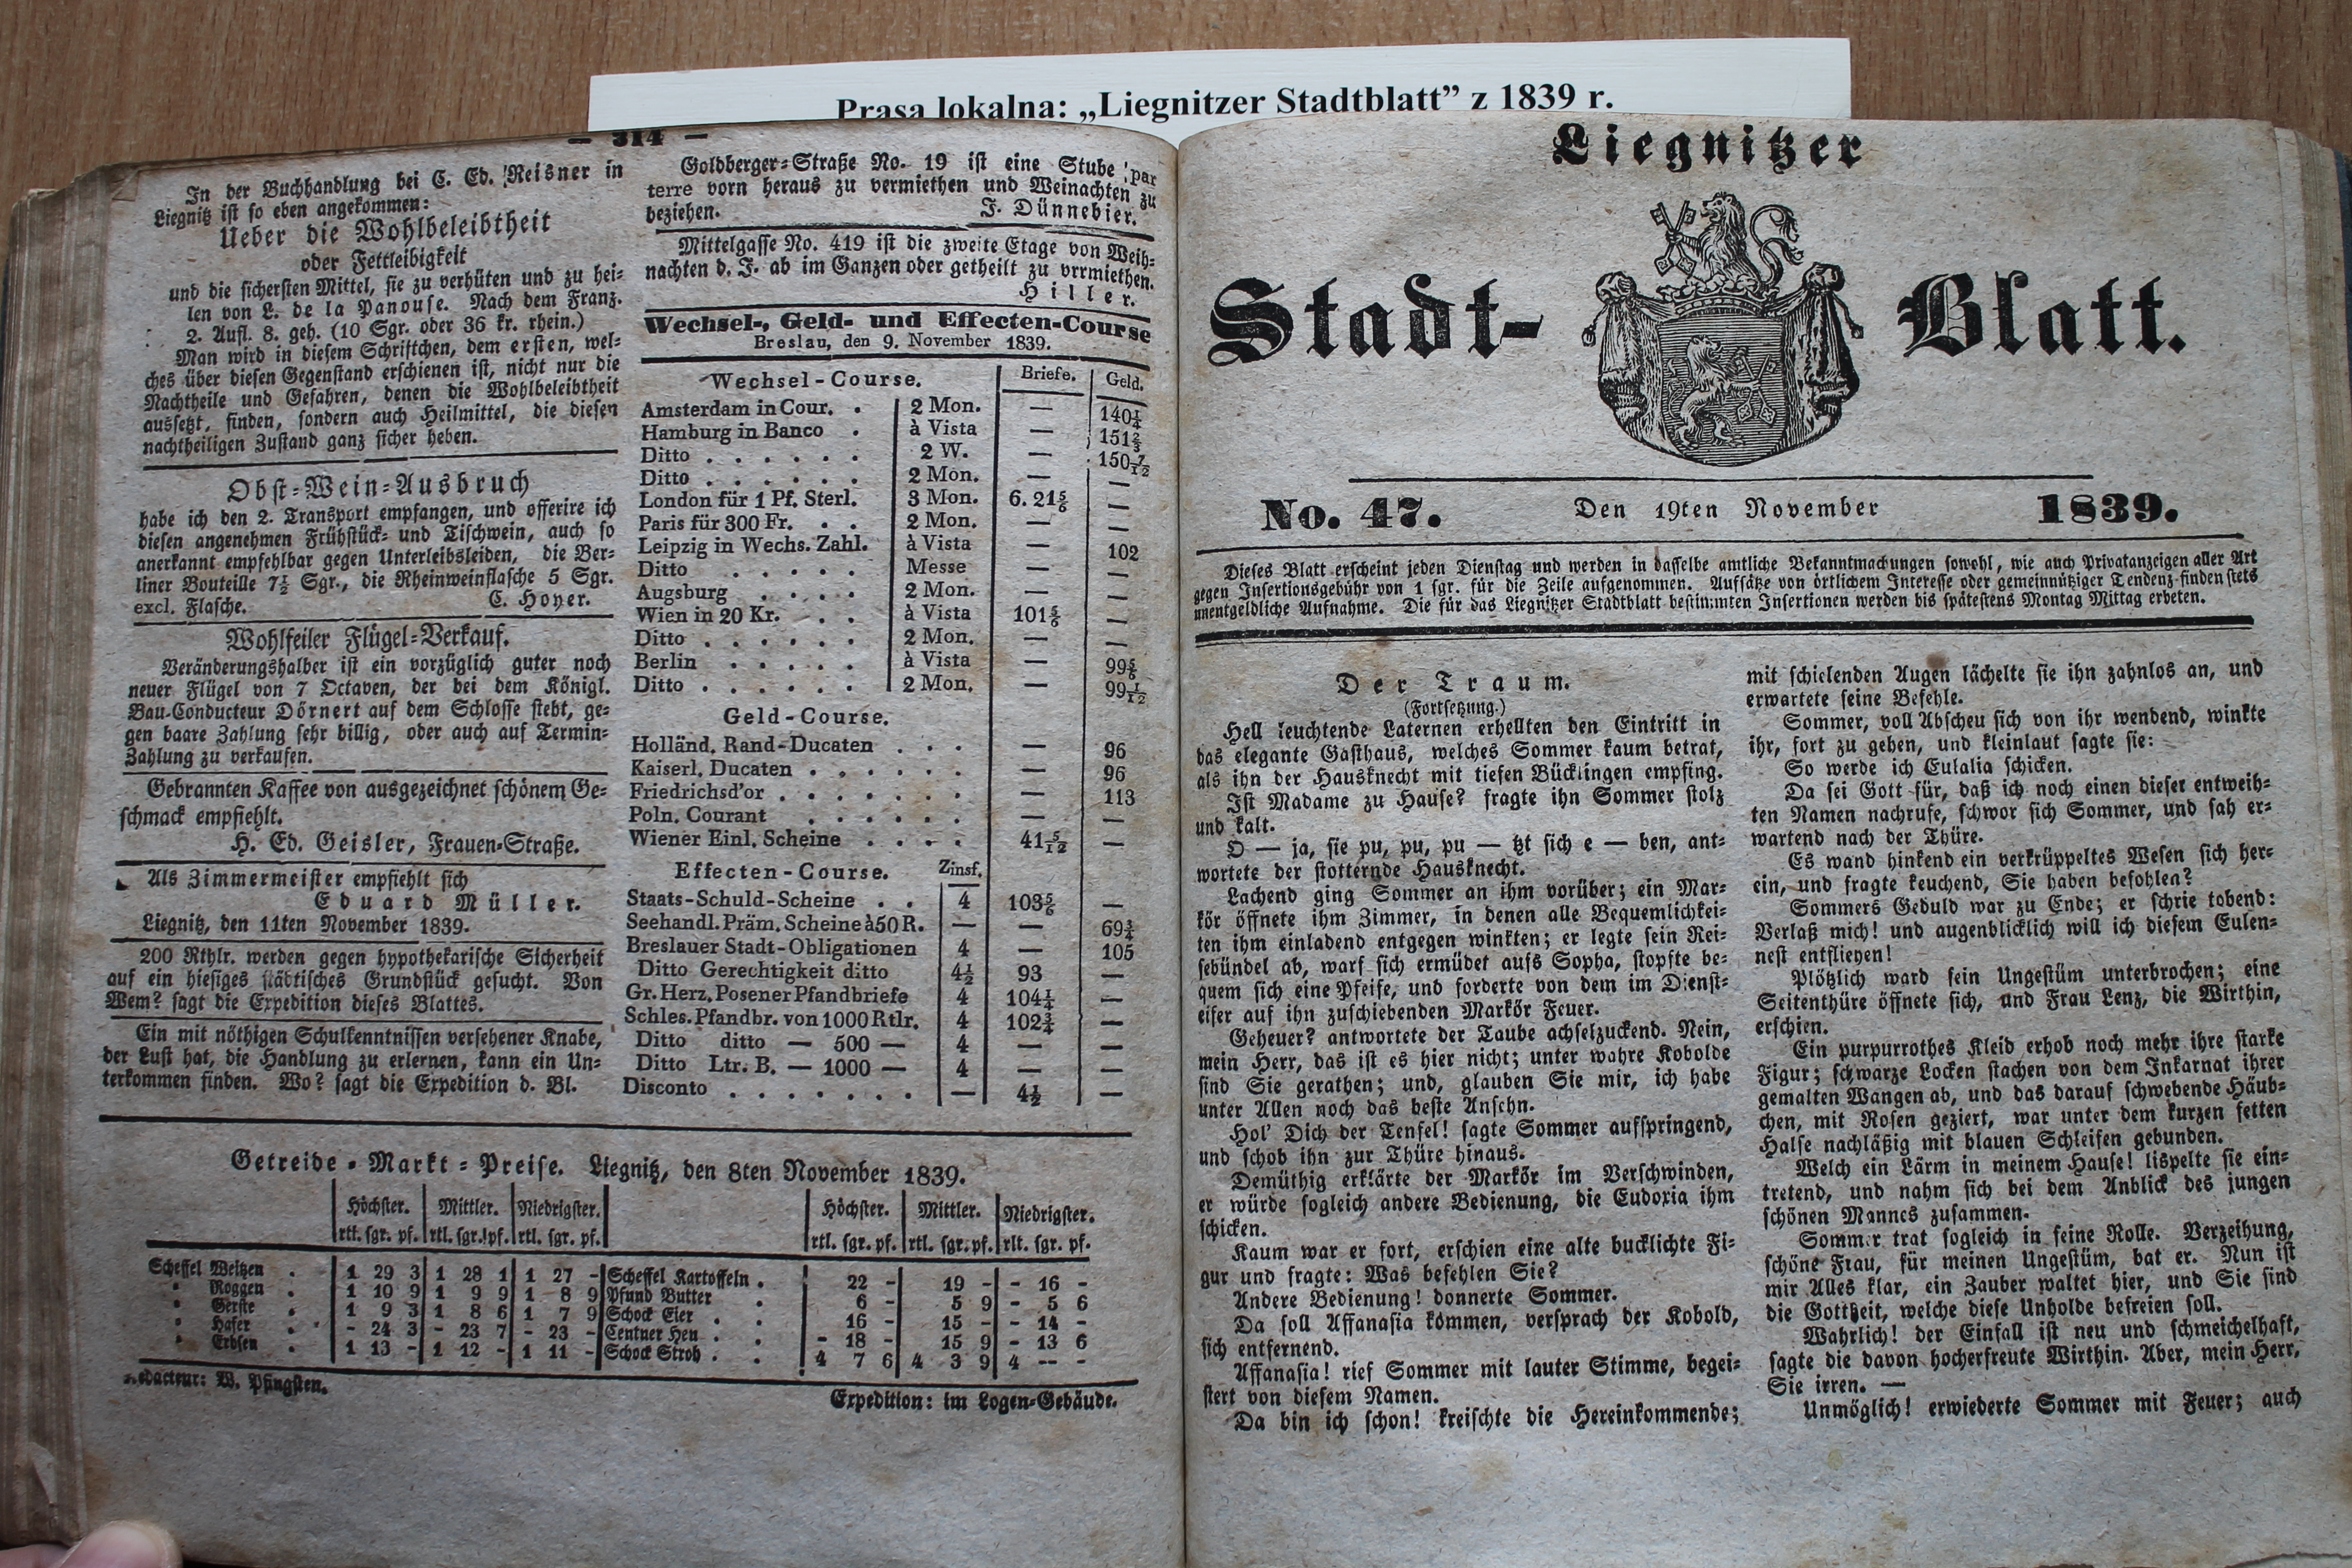 Prasa lokalna: „Liegnitzer Stadtblatt” z 1839 r.
— 314 —
In der Buchhandlung bei C. Ed. Reisner in
Liegnitz ist so eben angekommen:
Ueber die Wohlbeleibtheit
oder Fettleibigkeit
und die sichersten Mittel, sie zu verhüten und zu hei-
len von L. de la Panouse. Nach dem Franz.
2. Aufl. 8. geh. (10 Sgr. oder 36 kr. rhein.)
Man wird in diesem Schriftchen, dem ersten, wel-
ches über diesen Gegenstand erschienen ist, nicht nur die
Nachtheile und Gefahren, denen die Wohlbeleibtheit
aussetzt, finden, sondern auch Heilmittel, die diesen
nachtheiligen Zustand ganz sicher heben.
Obst-Wein-Ausbruch
habe ich den 2. Transport empfangen, und offerire ich
diesen angenehmen Frühstück- und Tischwein, auch so
anerkannt empfehlbar gegen Unterleibsleiden, die Ber-
liner Bouteille 7½ Sgr., die Rheinweinflasche 5 Sgr.
excl. Flasche. C. Hoyer.
Wohlfeiler Flügel-Verkauf.
Veränderungshalber ist ein vorzüglich guter noch
neuer Flügel von 7 Octaven, der bei dem Königl.
Bau-Conducteur Dörnert auf dem Schlosse steht, ge-
gen baare Zahlung sehr billig, oder auch auf Termin-
Zahlung zu verkaufen.
Gebrannten Kaffee von ausgezeichnet schönem Ge-
schmack empfiehlt.
H. Ed. Geisler, Frauen-Straße.
Als Zimmermeister empfiehlt sich
Eduard Müller.
Liegnitz, den 11ten November 1839.
200 Rthlr. werden gegen hypothekarische Sicherheit
auf ein hiesiges städtisches Grundstück gesucht. Von
Wem? sagt die Expedition dieses Blattes.
Ein mit nöthigen Schulkenntnissen versehener Knabe,
der Lust hat, die Handlung zu erlernen, kann ein Un-
terkommen finden. Wo? sagt die Expedition d. Bl.
Goldberger-Straße No. 19 ist eine Stube par
terre vorn heraus zu vermiethen und Weinachten zu
beziehen. J. Dünnebier.
Mittelgasse No. 419 ist die zweite Etage von Weih-
nachten d. J. ab im Ganzen oder getheilt zu vrrmiethen.
Hiller.
Wechsel-, Geld- und Effecten-Course
Breslau, den 9. November 1839.
Wechsel-Course. Briefe. Geld.
Amsterdam in Cour. . 2 Mon. — 140¼
Hamburg in Banco . à Vista — 151⅔
Ditto . . . . . . 2 W. — 150 7/12
Ditto . . . . . . 2 Mon. — —
London für 1 Pf. Sterl. 3 Mon. 6. 21⅚ —
Paris für 300 Fr. . . 2 Mon. — —
Leipzig in Wechs. Zahl. à Vista — 102
Ditto . . . . . Messe — —
Augsburg . . . . 2 Mon. — —
Wien in 20 Kr. . . à Vista 101⅚ —
Ditto . . . . . . 2 Mon. — —
Berlin . . . . . à Vista — 99⅚
Ditto . . . . . . 2 Mon. — 99 1/12
Geld-Course.
Holländ. Rand-Ducaten . . . — 96
Kaiserl. Ducaten . . . . . . — 96
Friedrichsd'or . . . . . . . — 113
Poln. Courant . . . . . . — —
Wiener Einl. Scheine . . . . 41 5/12 —
Effecten-Course. Zinsf.
Staats-Schuld-Scheine . . 4 103⅚ —
Seehandl. Präm. Scheine à 50 R. — — 69¾
Breslauer Stadt-Obligationen 4 — 105
Ditto Gerechtigkeit ditto 4½ 93 —
Gr. Herz. Posener Pfandbriefe 4 104¼ —
Schles. Pfandbr. von 1000 Rtlr. 4 102¾ —
Ditto ditto — 500 — 4 — —
Ditto Ltr. B. — 1000 — 4 — —
Disconto . . . . . . . — 4½ —
Getreide-Markt-Preise. Liegnitz, den 8ten November 1839.
Höchster. Mittler. Niedrigster. Höchster. Mittler. Niedrigster.
rtl. sgr. pf. rtl. sgr. pf. rtl. sgr. pf. rtl. sgr. pf. rtl. sgr. pf. rlt. sgr. pf.
Scheffel Weitzen . 1 29 3 1 28 1 1 27 - Scheffel Kartoffeln . 22 - 19 - - 16 -
" Roggen . 1 10 9 1 9 9 1 8 9 Pfund Butter . 6 - 5 9 - 5 6
" Gerste . 1 9 3 1 8 6 1 7 9 Schock Eier . . 16 - 15 - - 14 -
" Hafer . - 24 3 - 23 7 - 23 - Centner Heu . . - 18 - 15 9 - 13 6
" Erbsen . 1 13 - 1 12 - 1 11 - Schock Stroh . . 4 7 6 4 3 9 4 -- -
Redacteur: W. Pfingsten.
Expedition: im Logen-Gebäude.
Liegnitzer
Stadt- Blatt.
No. 47. Den 19ten November 1839.
Dieses Blatt erscheint jeden Dienstag und werden in dasselbe amtliche Bekanntmachungen sowohl, wie auch Privatanzeigen aller Art
gegen Insertionsgebühr von 1 sgr. für die Zeile aufgenommen. Aufsätze von örtlichem Interesse oder gemeinnütziger Tendenz finden stets
unentgeldliche Aufnahme. Die für das Liegnitzer Stadtblatt bestimmten Insertionen werden bis spätestens Montag Mittag erbeten.
Der Traum.
(Fortsetzung.)
Hell leuchtende Laternen erhellten den Eintritt in
das elegante Gasthaus, welches Sommer kaum betrat,
als ihn der Hausknecht mit tiefen Bücklingen empfing.
Ist Madame zu Hause? fragte ihn Sommer stolz
und kalt.
O — ja, sie pu, pu, pu — tzt sich e — ben, ant-
wortete der stotternde Hausknecht.
Lachend ging Sommer an ihm vorüber; ein Mar-
kör öffnete ihm Zimmer, in denen alle Bequemlichkei-
ten ihm einladend entgegen winkten; er legte sein Rei-
sebündel ab, warf sich ermüdet aufs Sopha, stopfte be-
quem sich eine Pfeife, und forderte von dem im Dienst-
eifer auf ihn zuschiebenden Markör Feuer.
Geheuer? antwortete der Taube achselzuckend. Nein,
mein Herr, das ist es hier nicht; unter wahre Kobolde
sind Sie gerathen; und, glauben Sie mir, ich habe
unter Allen noch das beste Ansehn.
Hol' Dich der Tenfel! sagte Sommer aufspringend,
und schob ihn zur Thüre hinaus.
Demüthig erklärte der Markör im Verschwinden,
er würde sogleich andere Bedienung, die Eudoxia ihm
schicken.
Kaum war er fort, erschien eine alte bucklichte Fi-
gur und fragte: Was befehlen Sie?
Andere Bedienung! donnerte Sommer.
Da soll Affanasia kommen, versprach der Kobold,
sich entfernend.
Affanasia! rief Sommer mit lauter Stimme, begei-
stert von diesem Namen.
Da bin ich schon! kreischte die Hereinkommende;
mit schielenden Augen lächelte sie ihn zahnlos an, und
erwartete seine Befehle.
Sommer, voll Abscheu sich von ihr wendend, winkte
ihr, fort zu gehen, und kleinlaut sagte sie:
So werde ich Eulalia schicken.
Da sei Gott für, daß ich noch einen dieser entweih-
ten Namen nachrufe, schwor sich Sommer, und sah er-
wartend nach der Thüre.
Es wand hinkend ein verkrüppeltes Wesen sich her-
ein, und fragte keuchend, Sie haben befohlen?
Sommers Geduld war zu Ende; er schrie tobend:
Verlaß mich! und augenblicklich will ich diesem Eulen-
nest entfliehen!
Plötzlich ward sein Ungestüm unterbrochen; eine
Seitenthüre öffnete sich, und Frau Lenz, die Wirthin,
erschien.
Ein purpurrothes Kleid erhob noch mehr ihre starke
Figur; schwarze Locken stachen von dem Inkarnat ihrer
gemalten Wangen ab, und das darauf schwebende Häub-
chen, mit Rosen geziert, war unter dem kurzen fetten
Halse nachläßig mit blauen Schleifen gebunden.
Welch ein Lärm in meinem Hause! lispelte sie ein-
tretend, und nahm sich bei dem Anblick des jungen
schönen Mannes zusammen.
Sommer trat sogleich in seine Rolle. Verzeihung,
schöne Frau, für meinen Ungestüm, bat er. Nun ist
mir Alles klar, ein Zauber waltet hier, und Sie sind
die Gottheit, welche diese Unholde befreien soll.
Wahrlich! der Einfall ist neu und schmeichelhaft,
sagte die davon hocherfreute Wirthin. Aber, mein Herr,
Sie irren. —
Unmöglich! erwiederte Sommer mit Feuer; auch